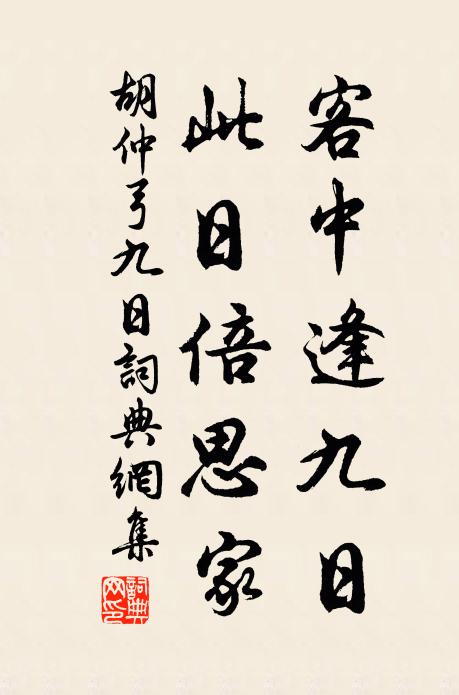 客中逢九日
此日倍思家
胡仲弓九日詞典網集
詞典网印